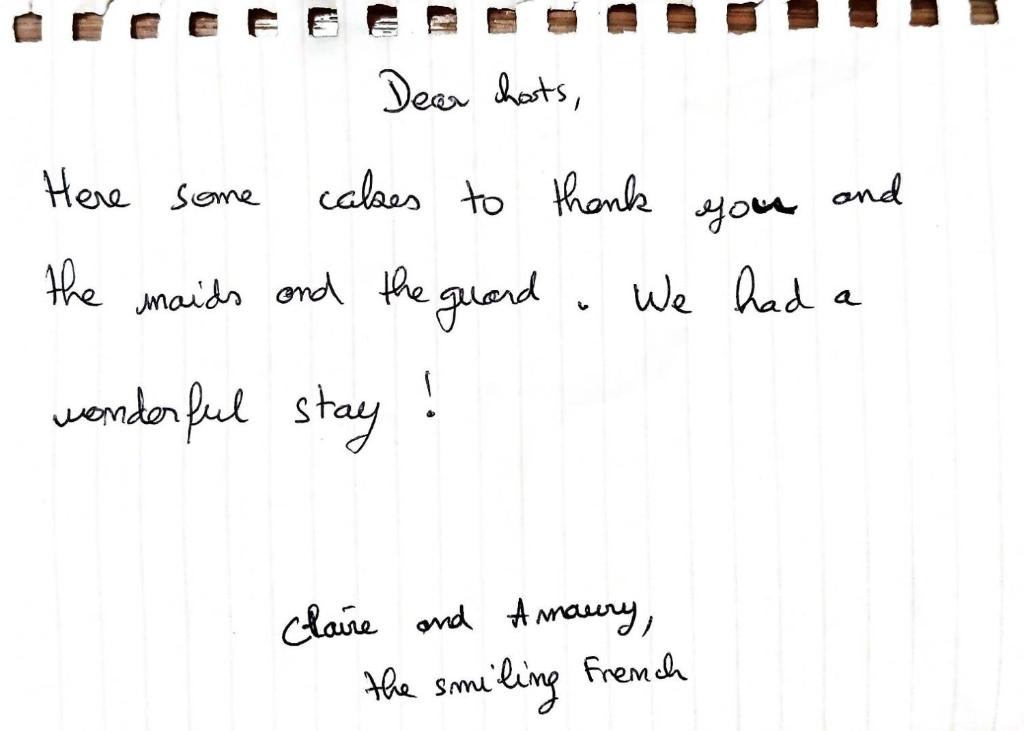 Dear hosts,
Here some cakes to thank you and
the maids and the guard. We had a
wonderful stay !
Claire and Amaury,
the smiling French